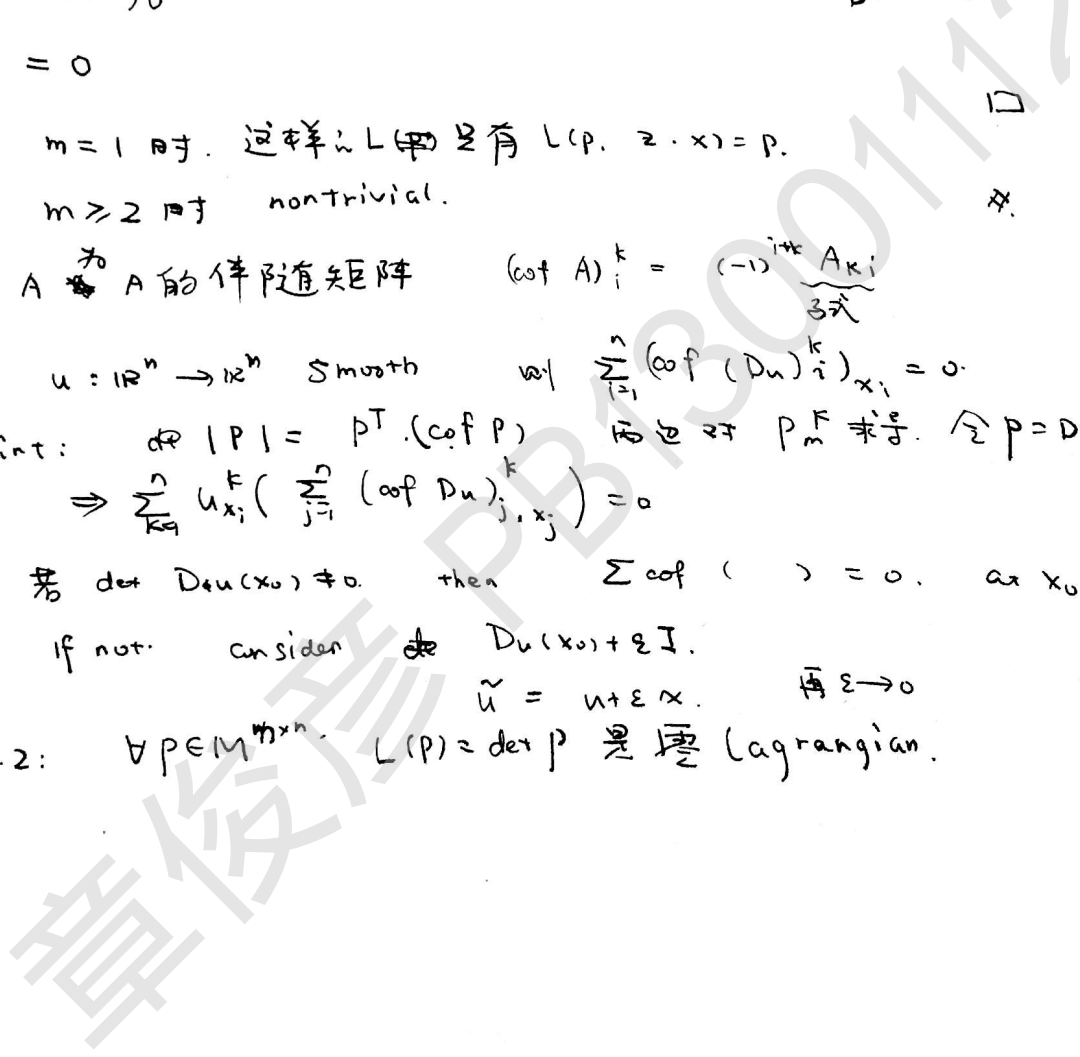 = 0
m = 1 时. 这样的 L 只有 L(p, z, x) = p.
m ≥ 2 时 nontrivial. #.
A 为 A 的伴随矩阵 (cof A)_i^k = (-1)^{i+k} A_{ki} 子式
u : ℝ^n → ℝ^n smooth 则 \sum_{i=1}^n (cof (Du)_i^k)_{x_i} = 0.
int: |P| = P^T.(cof P) 两边对 P_m^k 求导. 令 p = D
⇒ \sum_{k=1}^n u_{x_i}^k ( \sum_{j=1}^n (cof Du)_{j, x_j}^k ) = 0
若 det Du(x_0) ≠ 0. then Σ cof ( ) = 0. at x_0
If not. consider Du(x_0) + εI.
ũ = u + εx. 再 ε → 0
.2: ∀ P ∈ M^{n×n}. L(P) = det P 是零 Lagrangian.
章俊彦 PB1300112